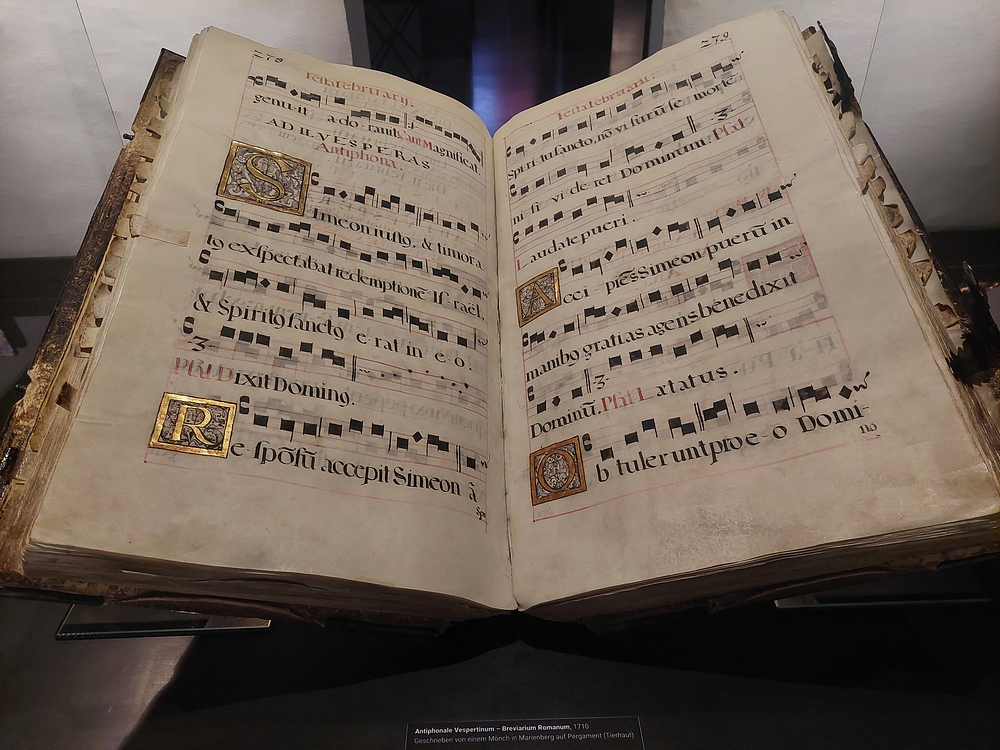 278
Festa Februarii.
genuit adorauit. Ant Magnificat
AD II. VESPERAS
Antiphona
Simeon iustꝯ, & timora
tꝯ exspectabat redemptionē Israel,
& Spiritꝯ sanctꝯ erat in eo.
Psal. Dixit Dominꝯ.
Respōsū accepit Simeon ā
Sp
279
Festa Februarii.
Spiritu sancto, nō visurū se morte
nisi videret Dominum. Psal.
Laudate pueri.
Accipiēs Simeon puerū in
manibꝯ gratias agens benedixit
Dominū. Psal. Lætatus.
Obtulerunt pro eo Domi-
no
Antiphonale Vespertinum – Breviarium Romanum, 1710
Geschrieben von einem Mönch in Marienberg auf Pergament (Tierhaut)